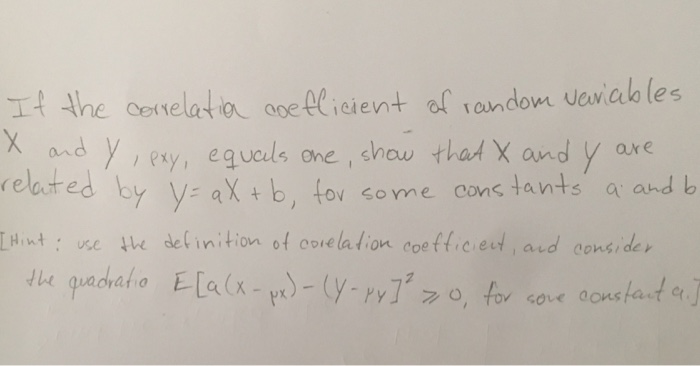 If the correlation coefficient of random variables
X and Y, ρxy, equals one, show that X and Y are
related by Y = aX + b, for some constants a and b
[Hint : use the definition of corelation coefficient, and consider
the quadratio E[a(X - μx) - (Y - μY]² ⩾ 0, for some constant a.]